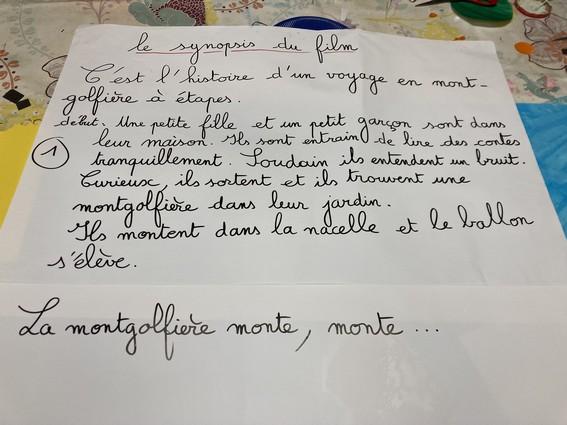 le synopsis du film
C'est l'histoire d'un voyage en mont-
golfière à étapes.
début. Une petite fille et un petit garçon sont dans
leur maison. Ils sont entrain de lire des contes
1 tranquillement. Soudain ils entendent un bruit.
Curieux, ils sortent et ils trouvent une
montgolfière dans leur jardin.
Ils montent dans la nacelle et le ballon
s'élève.
La montgolfière monte, monte ...